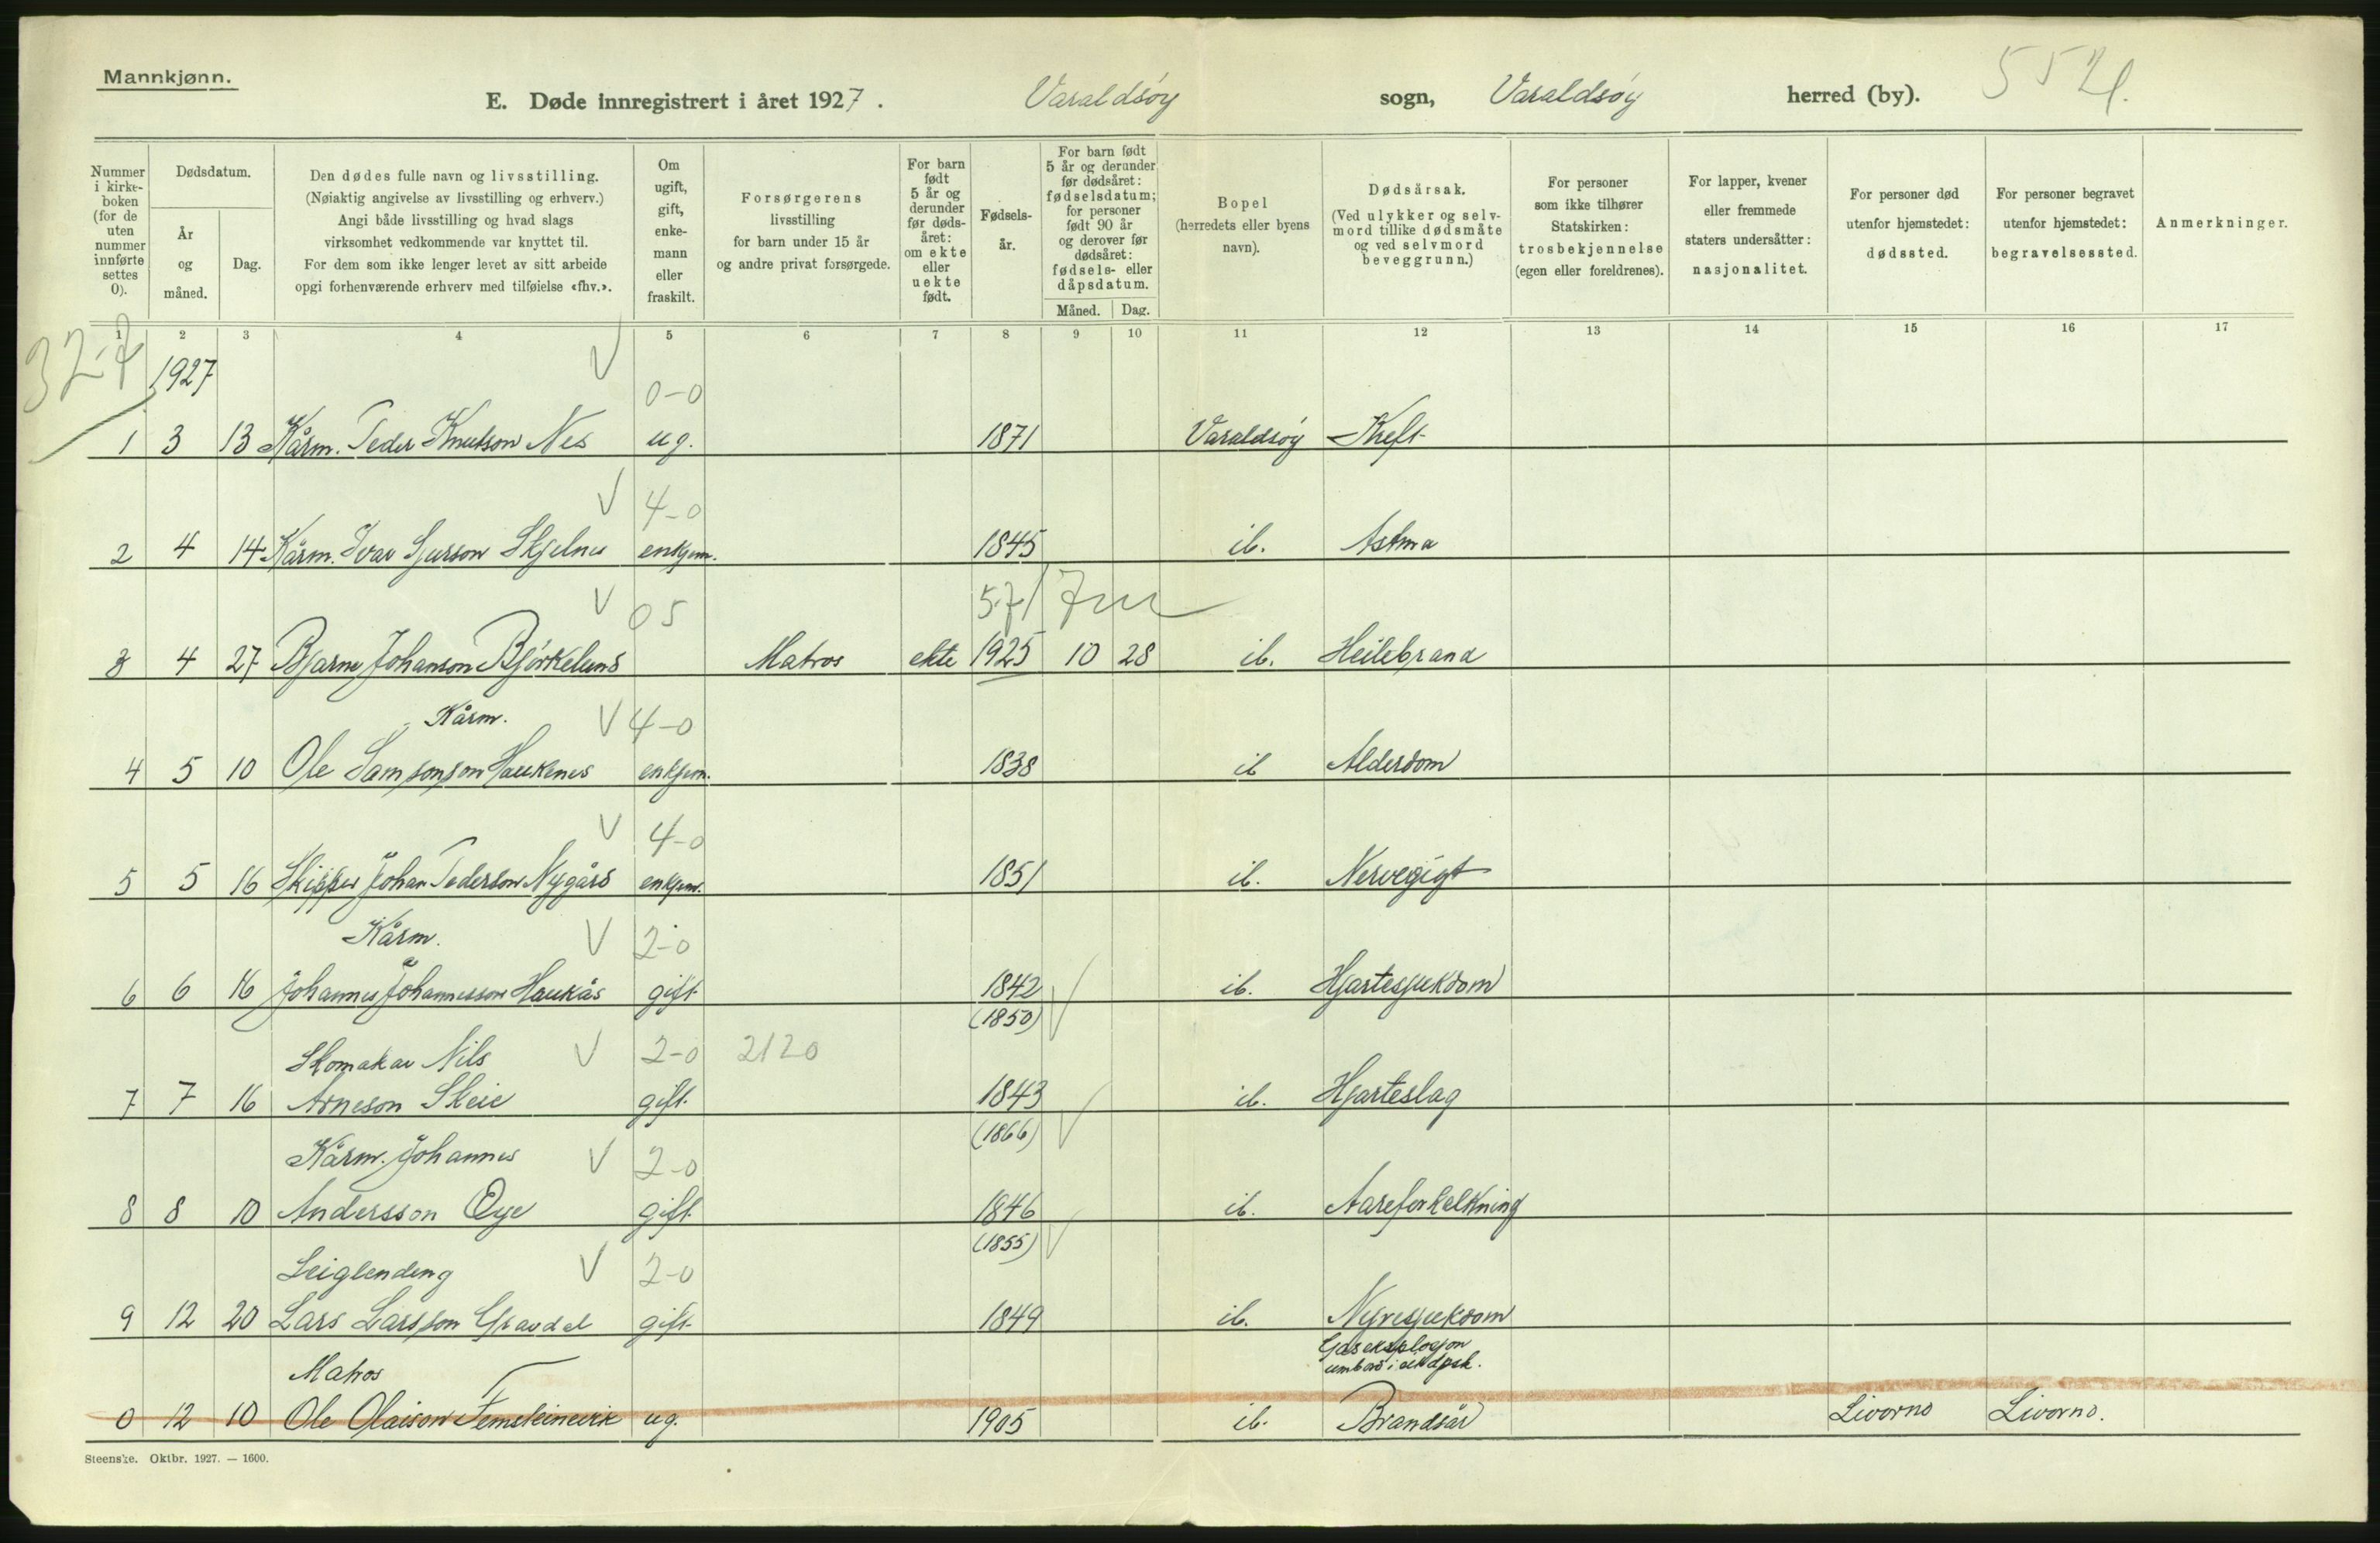 Mannkjønn.
E. Døde innregistrert i året 1927. Varaldsøy sogn, Varaldsøy herred (by).
Nummer i kirkeboken (for de uten nummer innførte settes 0).
Dødsdatum.
År og måned.
Dag.
Den dødes fulle navn og livsstilling.
(Nøiaktig angivelse av livsstilling og erhverv.)
Angi både livsstilling og hvad slags
virksomhet vedkommende var knyttet til.
For dem som ikke lenger levet av sitt arbeide
opgi forhenværende erhverv med tilføielse «fhv.».
Om ugift, gift, enkemann eller fraskilt.
Forsørgerens
livsstilling
for barn under 15 år
og andre privat forsørgede.
For barn født 5 år og derunder før dødsåret: om ekte eller uekte født.
Fødselsår.
For barn født 5 år og derunder før dødsåret: fødselsdatum; for personer født 90 år og derover før dødsåret: fødsels- eller dåpsdatum.
Måned. Dag.
Bopel
(herredets eller byens
navn).
Dødsårsak.
(Ved ulykker og selvmord tillike dødsmåte og ved selvmord beveggrunn.)
For personer
som ikke tilhører
Statskirken:
trosbekjennelse
(egen eller foreldrenes).
For lapper, kvener
eller fremmede
staters undersåtter:
nasjonalitet.
For personer død
utenfor hjemstedet:
dødssted.
For personer begravet
utenfor hjemstedet:
begravelsessted.
Anmerkninger.
1 2 3 4 5 6 7 8 9 10 11 12 13 14 15 16 17
1927
0-0
1 3 13 Kårm. Peder Knutson Nes ug. 1871 Varaldsøy Kreft
4-0
2 4 14 Kårm. Ivar Sjurson Skjelnes enkjem. 1845 ib. Astma
05
3 4 27 Bjarne Johanson Bjørkelund Matros ekte 1925 10 28 ib. Heilebrand
Kårm. 4-0
4 5 10 Ole Samsonson Haukenes enkjem. 1838 ib Alderdom
4-0
5 5 16 Skipper Johan Pederson Nygård enkjem. 1851 ib. Nervegigt
Kårm. 2-0
6 6 16 Johannes Johannesson Haukås gift 1842 ib. Hjartesjukdom
(1850)
Skomakar Nils 2-0 2120
7 7 16 Arneson Skeie gift. 1843 ib. Hjarteslag
(1866)
Kårm. Johannes 2-0
8 8 10 Andersson Øye gift. 1846 ib. Aareforkalkning
(1855)
Leiglending 2-0
9 12 20 Lars Larsson Gravdal gift. 1849 ib. Nyresjukdom
Matros Gaseksplosjon
umbord i
0 12 10 Ole Olaison Femsteinevik ug. 1905 ib. Brandsår Livorno Livorno.
Steenske. Oktbr. 1927. — 1600.